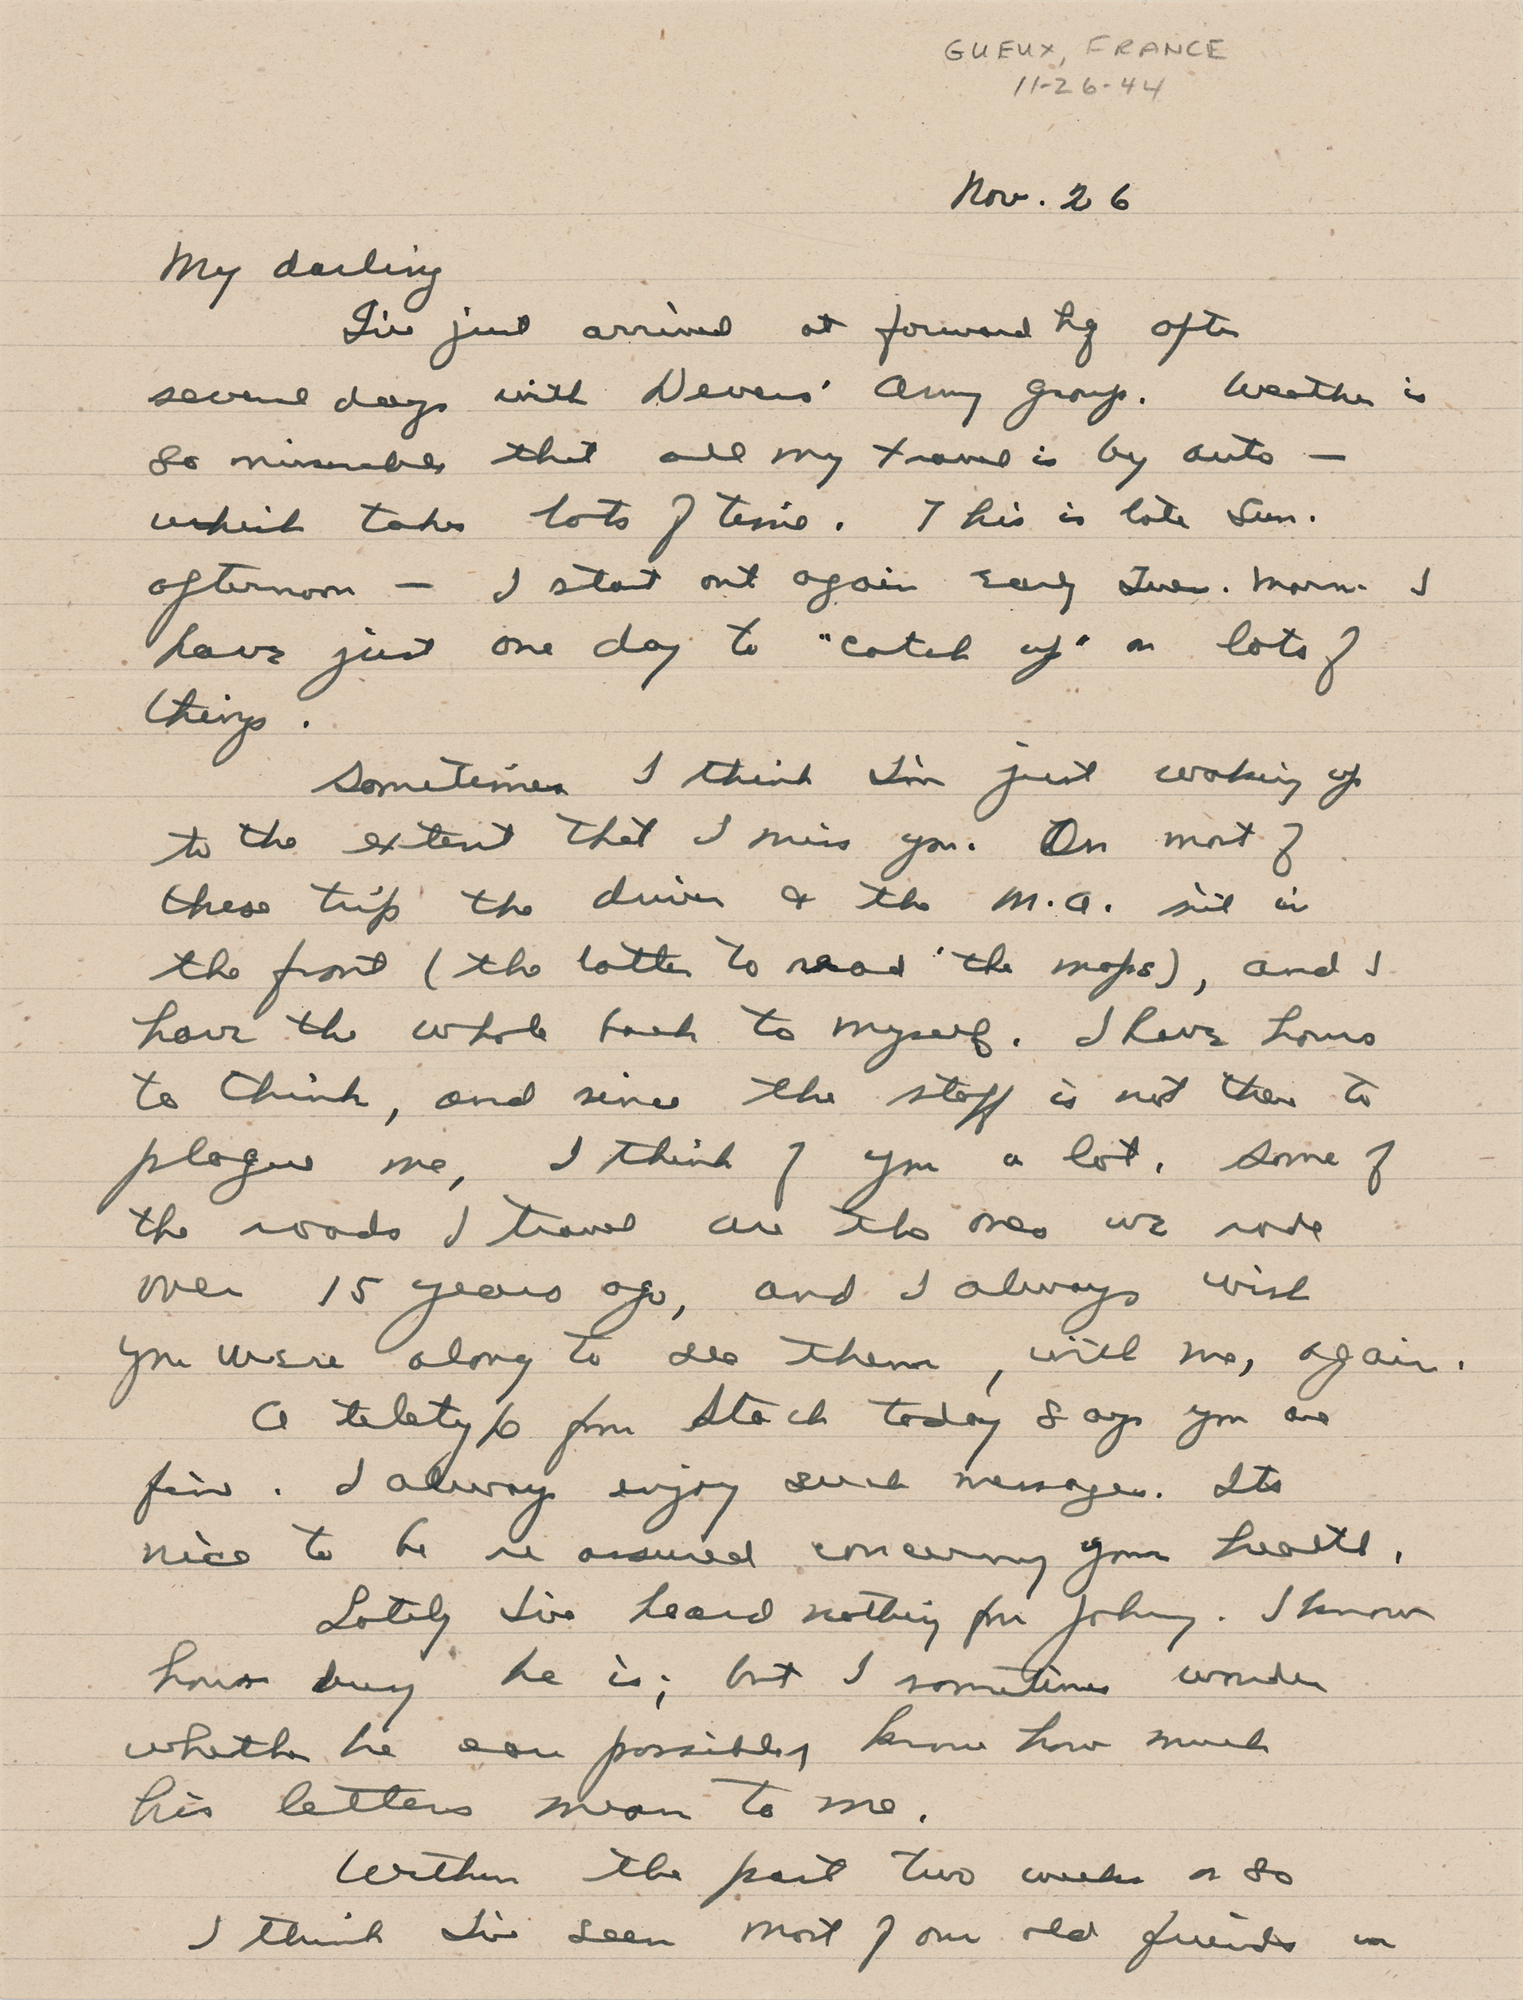 GUEUX, FRANCE
11-26-44
Nov. 26
My darling
I've just arrived at forward hq after
several days with Devers' Army group. Weather is
so miserable that all my travel is by auto —
which takes lots of time. This is late Sun.
afternoon — I start out again early Tues. morn. I
have just one day to "catch up" on lots of
things.
Sometimes I think I'm just waking up
to the extent that I miss you. On most of
these trips the driver & the M.A. sit in
the front (the latter to read the maps), and I
have the whole back to myself. I have hours
to think, and since the staff is not there to
plague me, I think of you a lot. Some of
the roads I travel are the ones we rode
over 15 years ago, and I always wish
you were along to see them, with me, again.
A teletype from Stack today says you are
fine. I always enjoy such messages. Its
nice to be reassured concerning your health.
Lately I've heard nothing from Johnny. I know
how busy he is; but I sometimes wonder
whether he can possibly know how much
his letters mean to me.
Within the past two weeks or so
I think I've seen most of our old friends in